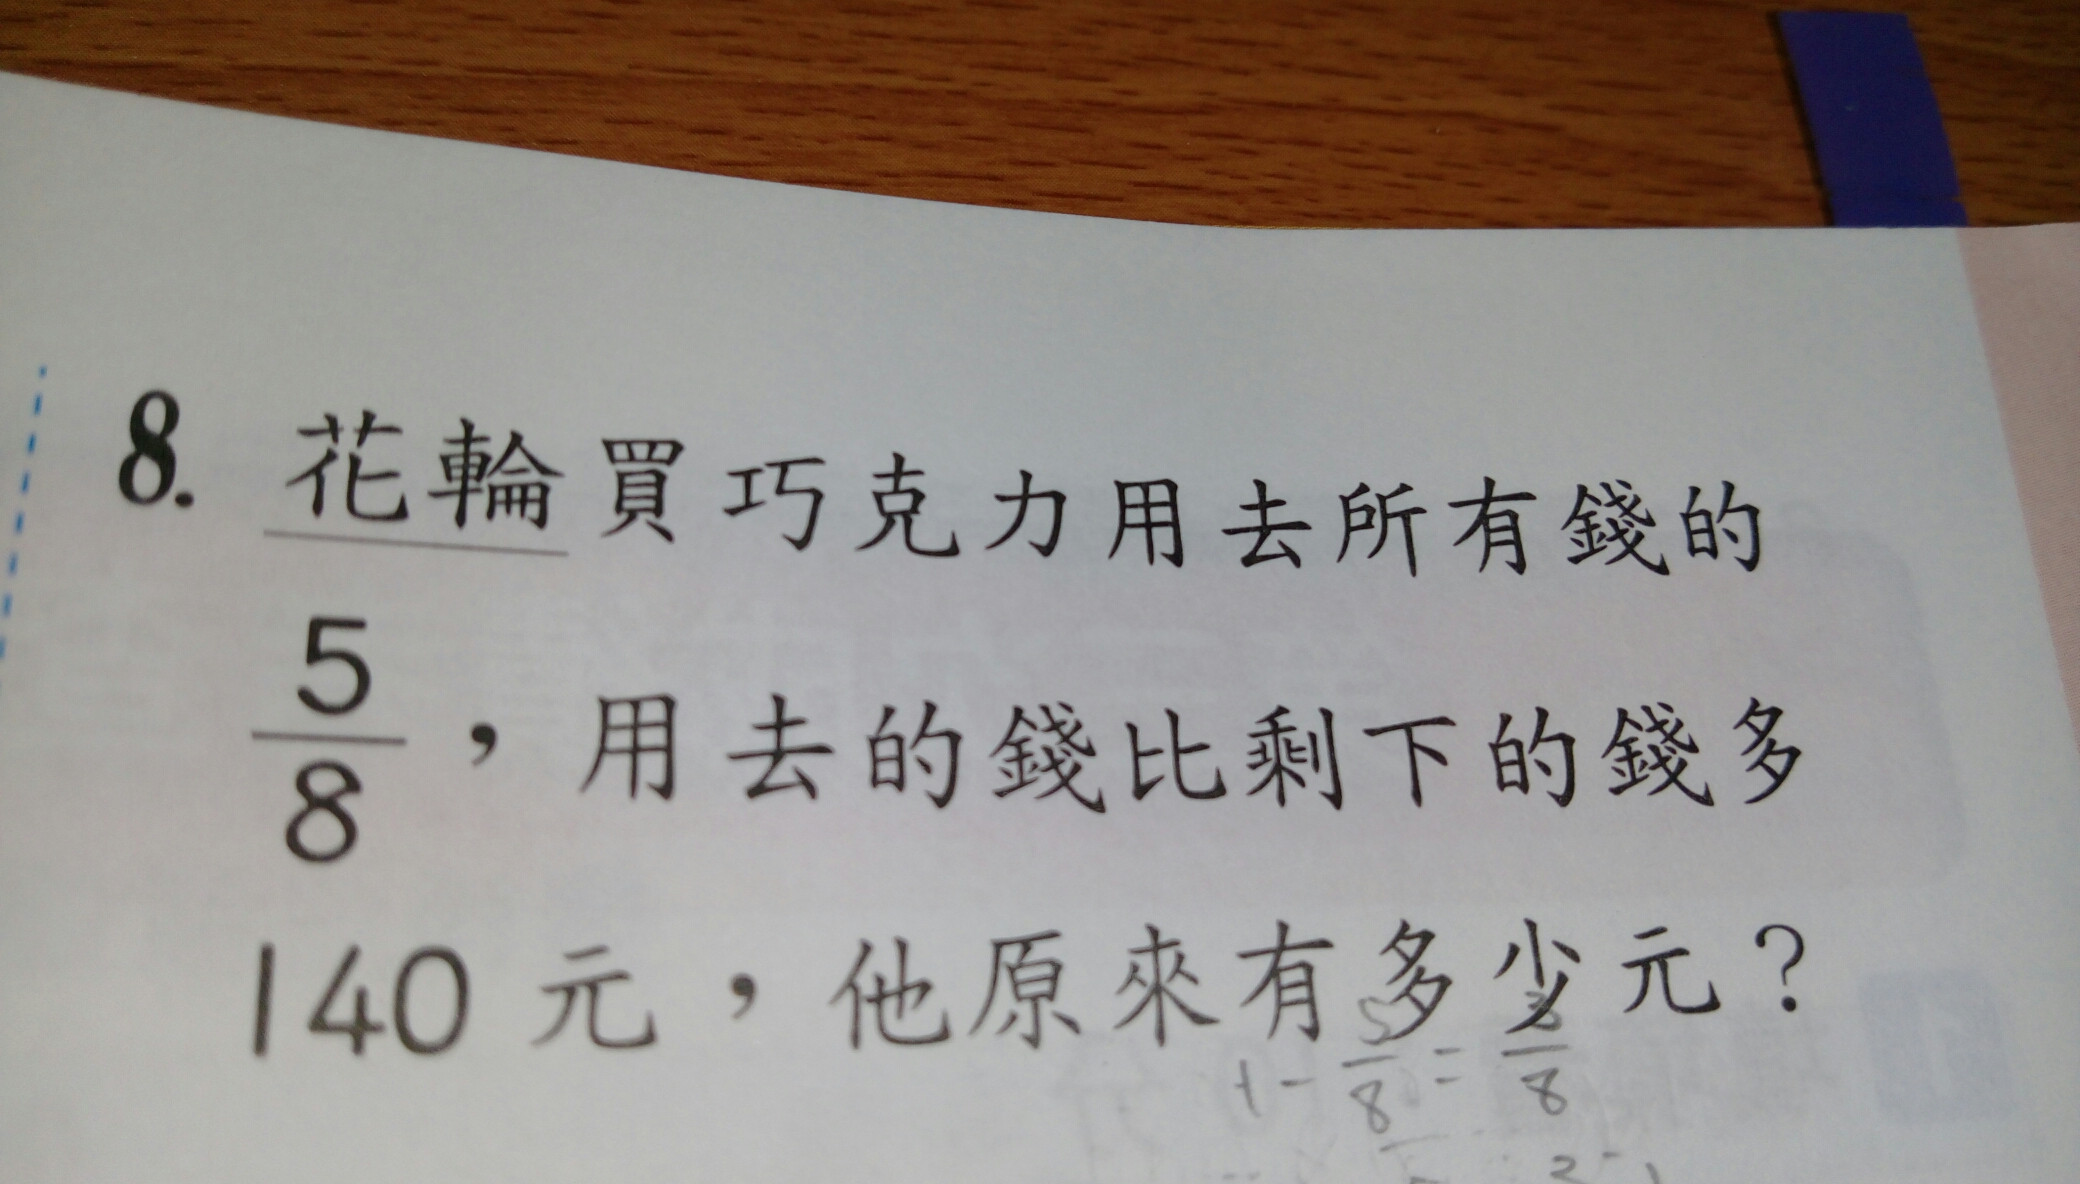 8. 花輪買巧克力用去所有錢的
5/8，用去的錢比剩下的錢多
140元，他原來有多少元？
1-5/8=3/8